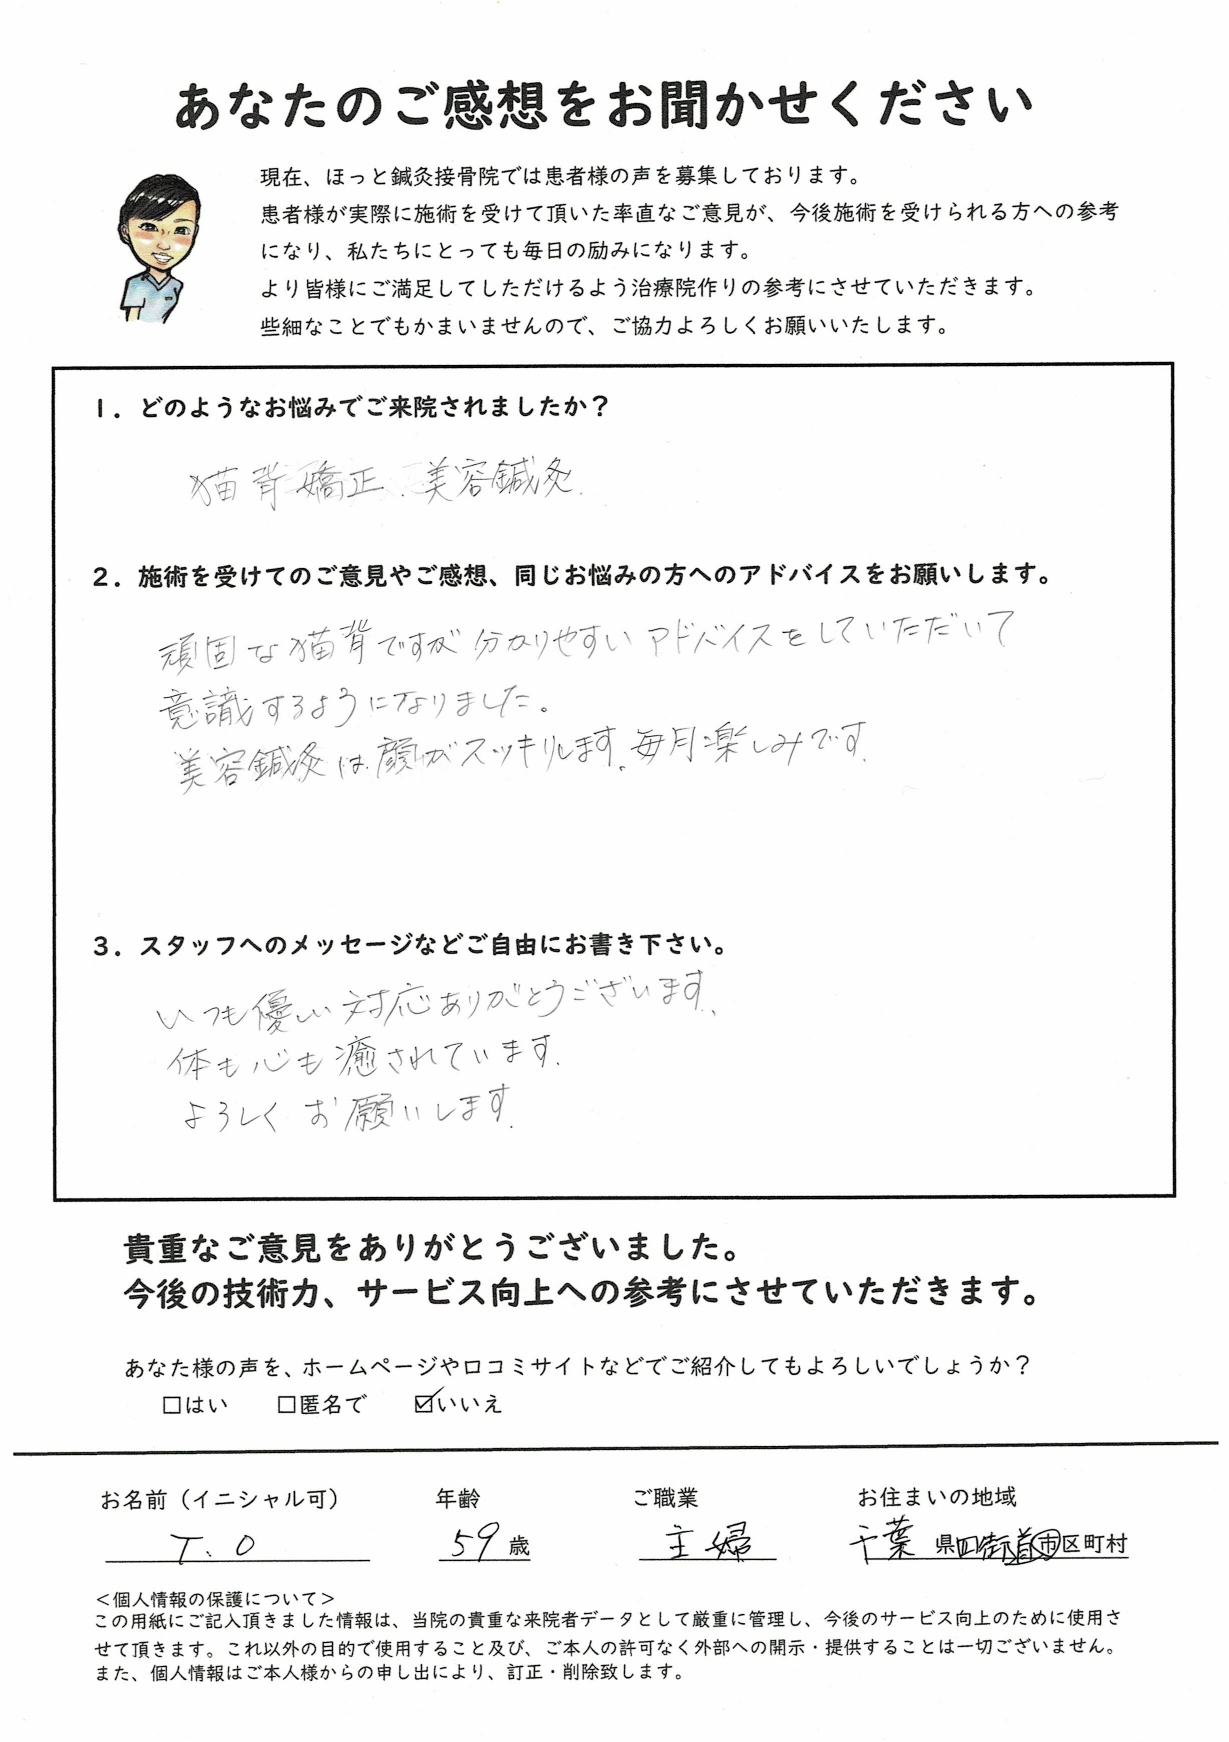 あなたのご感想をお聞かせください
現在、ほっと鍼灸接骨院では患者様の声を募集しております。
患者様が実際に施術を受けて頂いた率直なご意見が、今後施術を受けられる方への参考
になり、私たちにとっても毎日の励みになります。
より皆様にご満足してしただけるよう治療院作りの参考にさせていただきます。
些細なことでもかまいませんので、ご協力よろしくお願いいたします。
1．どのようなお悩みでご来院されましたか？
猫背矯正、美容鍼灸.
2．施術を受けてのご意見やご感想、同じお悩みの方へのアドバイスをお願いします。
頑固な猫背ですが分かりやすいアドバイスをしていただいて
意識するようになりました。
美容鍼灸は顔がスッキリします。毎月楽しみです.
3．スタッフへのメッセージなどご自由にお書き下さい。
いつも優しい対応ありがとうございます。
体も心も癒されています.
よろしくお願いします.
貴重なご意見をありがとうございました。
今後の技術力、サービス向上への参考にさせていただきます。
あなた様の声を、ホームページや口コミサイトなどでご紹介してもよろしいでしょうか？
□はい □匿名で ☑いいえ
お名前（イニシャル可） 年齢 ご職業 お住まいの地域
T.O 59歳 主婦 千葉県四街道市区町村
＜個人情報の保護について＞
この用紙にご記入頂きました情報は、当院の貴重な来院者データとして厳重に管理し、今後のサービス向上のために使用さ
せて頂きます。これ以外の目的で使用すること及び、ご本人の許可なく外部への開示・提供することは一切ございません。
また、個人情報はご本人様からの申し出により、訂正・削除致します。